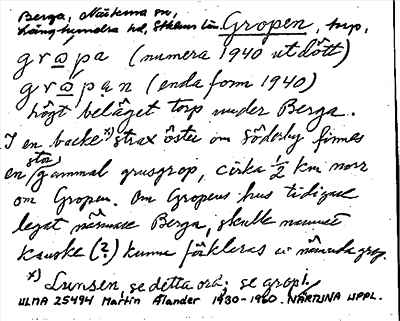 Berga, Närtuna sn,
Långhundra hd, Sthlms län. Gropen, torp,
gropa (numera 1940 utdött)
gropan (enda form 1940)
högt beläget torp under Berga.
I en backe x) strax öster om Söderby finnes
en stor gammal grusgrop, cirka 1/2 km norr
om Gropen. Om Gropens hus tidigare
legat närmare Berga, skulle namnet
kanske (?) kunna förklaras av nämnda grop.
x) Lunsen, se detta ord, se grop 1.
ULMA 25494 Martin Ålander 1930-1960. NÄRTUNA UPPL.